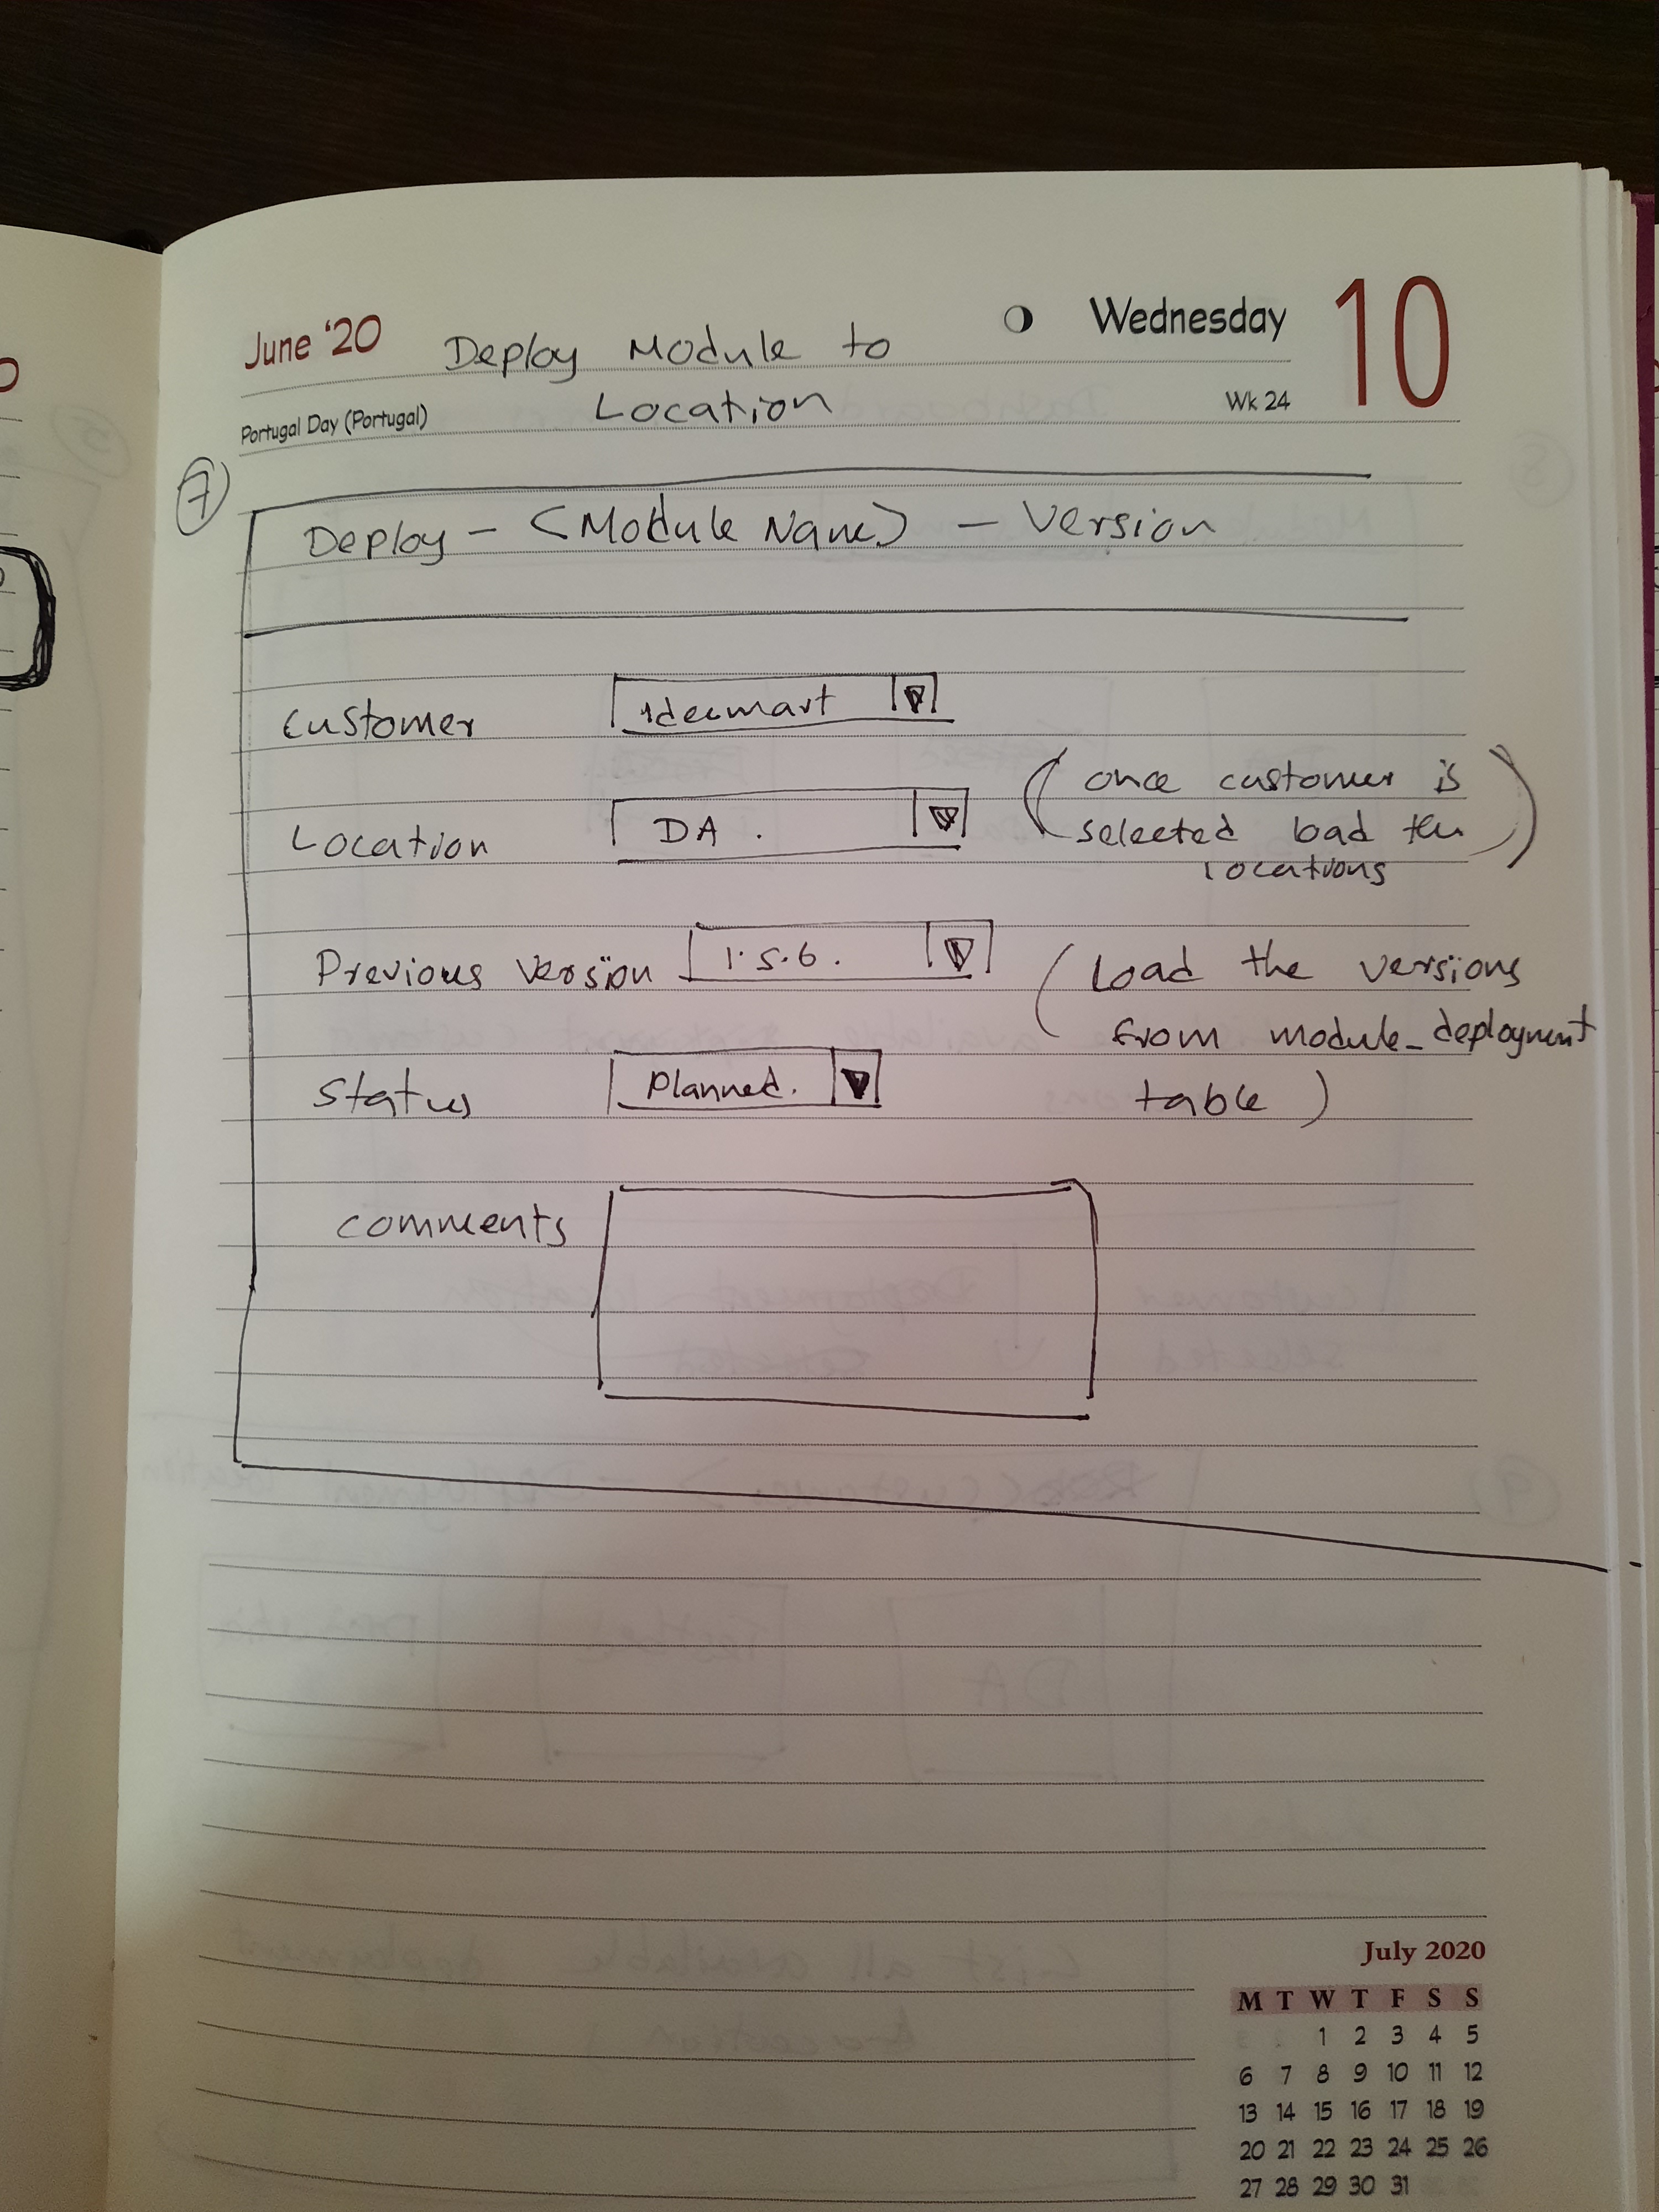 June '20
Wednesday
10
Deploy Module to
Location
Portugal Day (Portugal)
Wk 24
7
Deploy - <Module Name> - Version
Customer
Ideamart
Location
DA.
(once customer is
selected load the
locations)
Previous Version
1.5.6.
(Load the versions
from module_deployment
table)
Status
Planned.
comments
July 2020
M T W T F S S
1 2 3 4 5
6 7 8 9 10 11 12
13 14 15 16 17 18 19
20 21 22 23 24 25 26
27 28 29 30 31